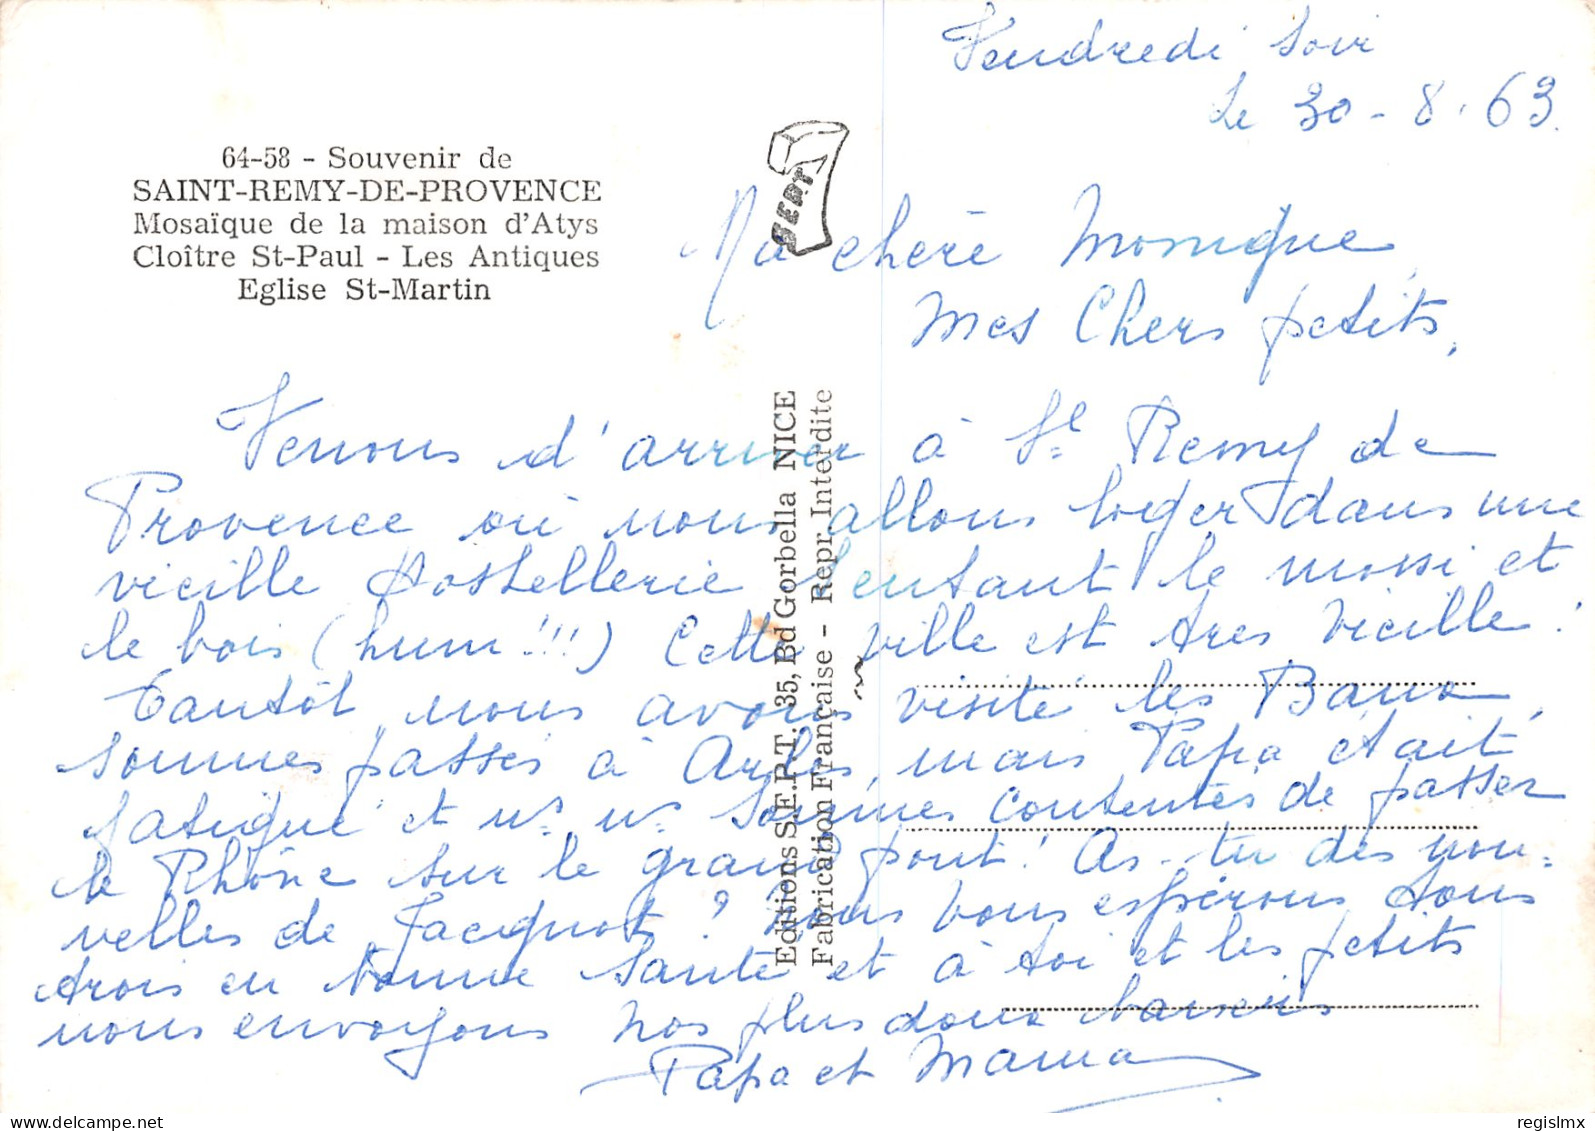 Vendredi soir
le 30-8.63.
64-58 - Souvenir de
SAINT-REMY-DE-PROVENCE
Mosaïque de la maison d'Atys
Cloître St-Paul - Les Antiques
Eglise St-Martin
SEPT
Ma chère Monique,
Mes Chers petits,
Venons d'arriver à St Remy de
Provence où nous allons loger dans une
vieille Hostellerie sentant le moisi et
le bois (hum!!!) Cette ville est très vieille!
Tantôt nous avons visité les Baux,
sommes passés à Arles, mais Papa était
fatigué et ns. ns. sommes contentés de passer
le Rhône sur le grand pont! As-tu des nou-
velles de Jacquot? Nous vous espérons tous
trois en bonne santé et à toi et les petits
nous envoyons nos plus doux baisers
Papa et Mama
Editions S.E.P.T. 35, Bd Gorbella NICE
Fabrication Française - Repr. Interdite
delcampe.net
regislmx